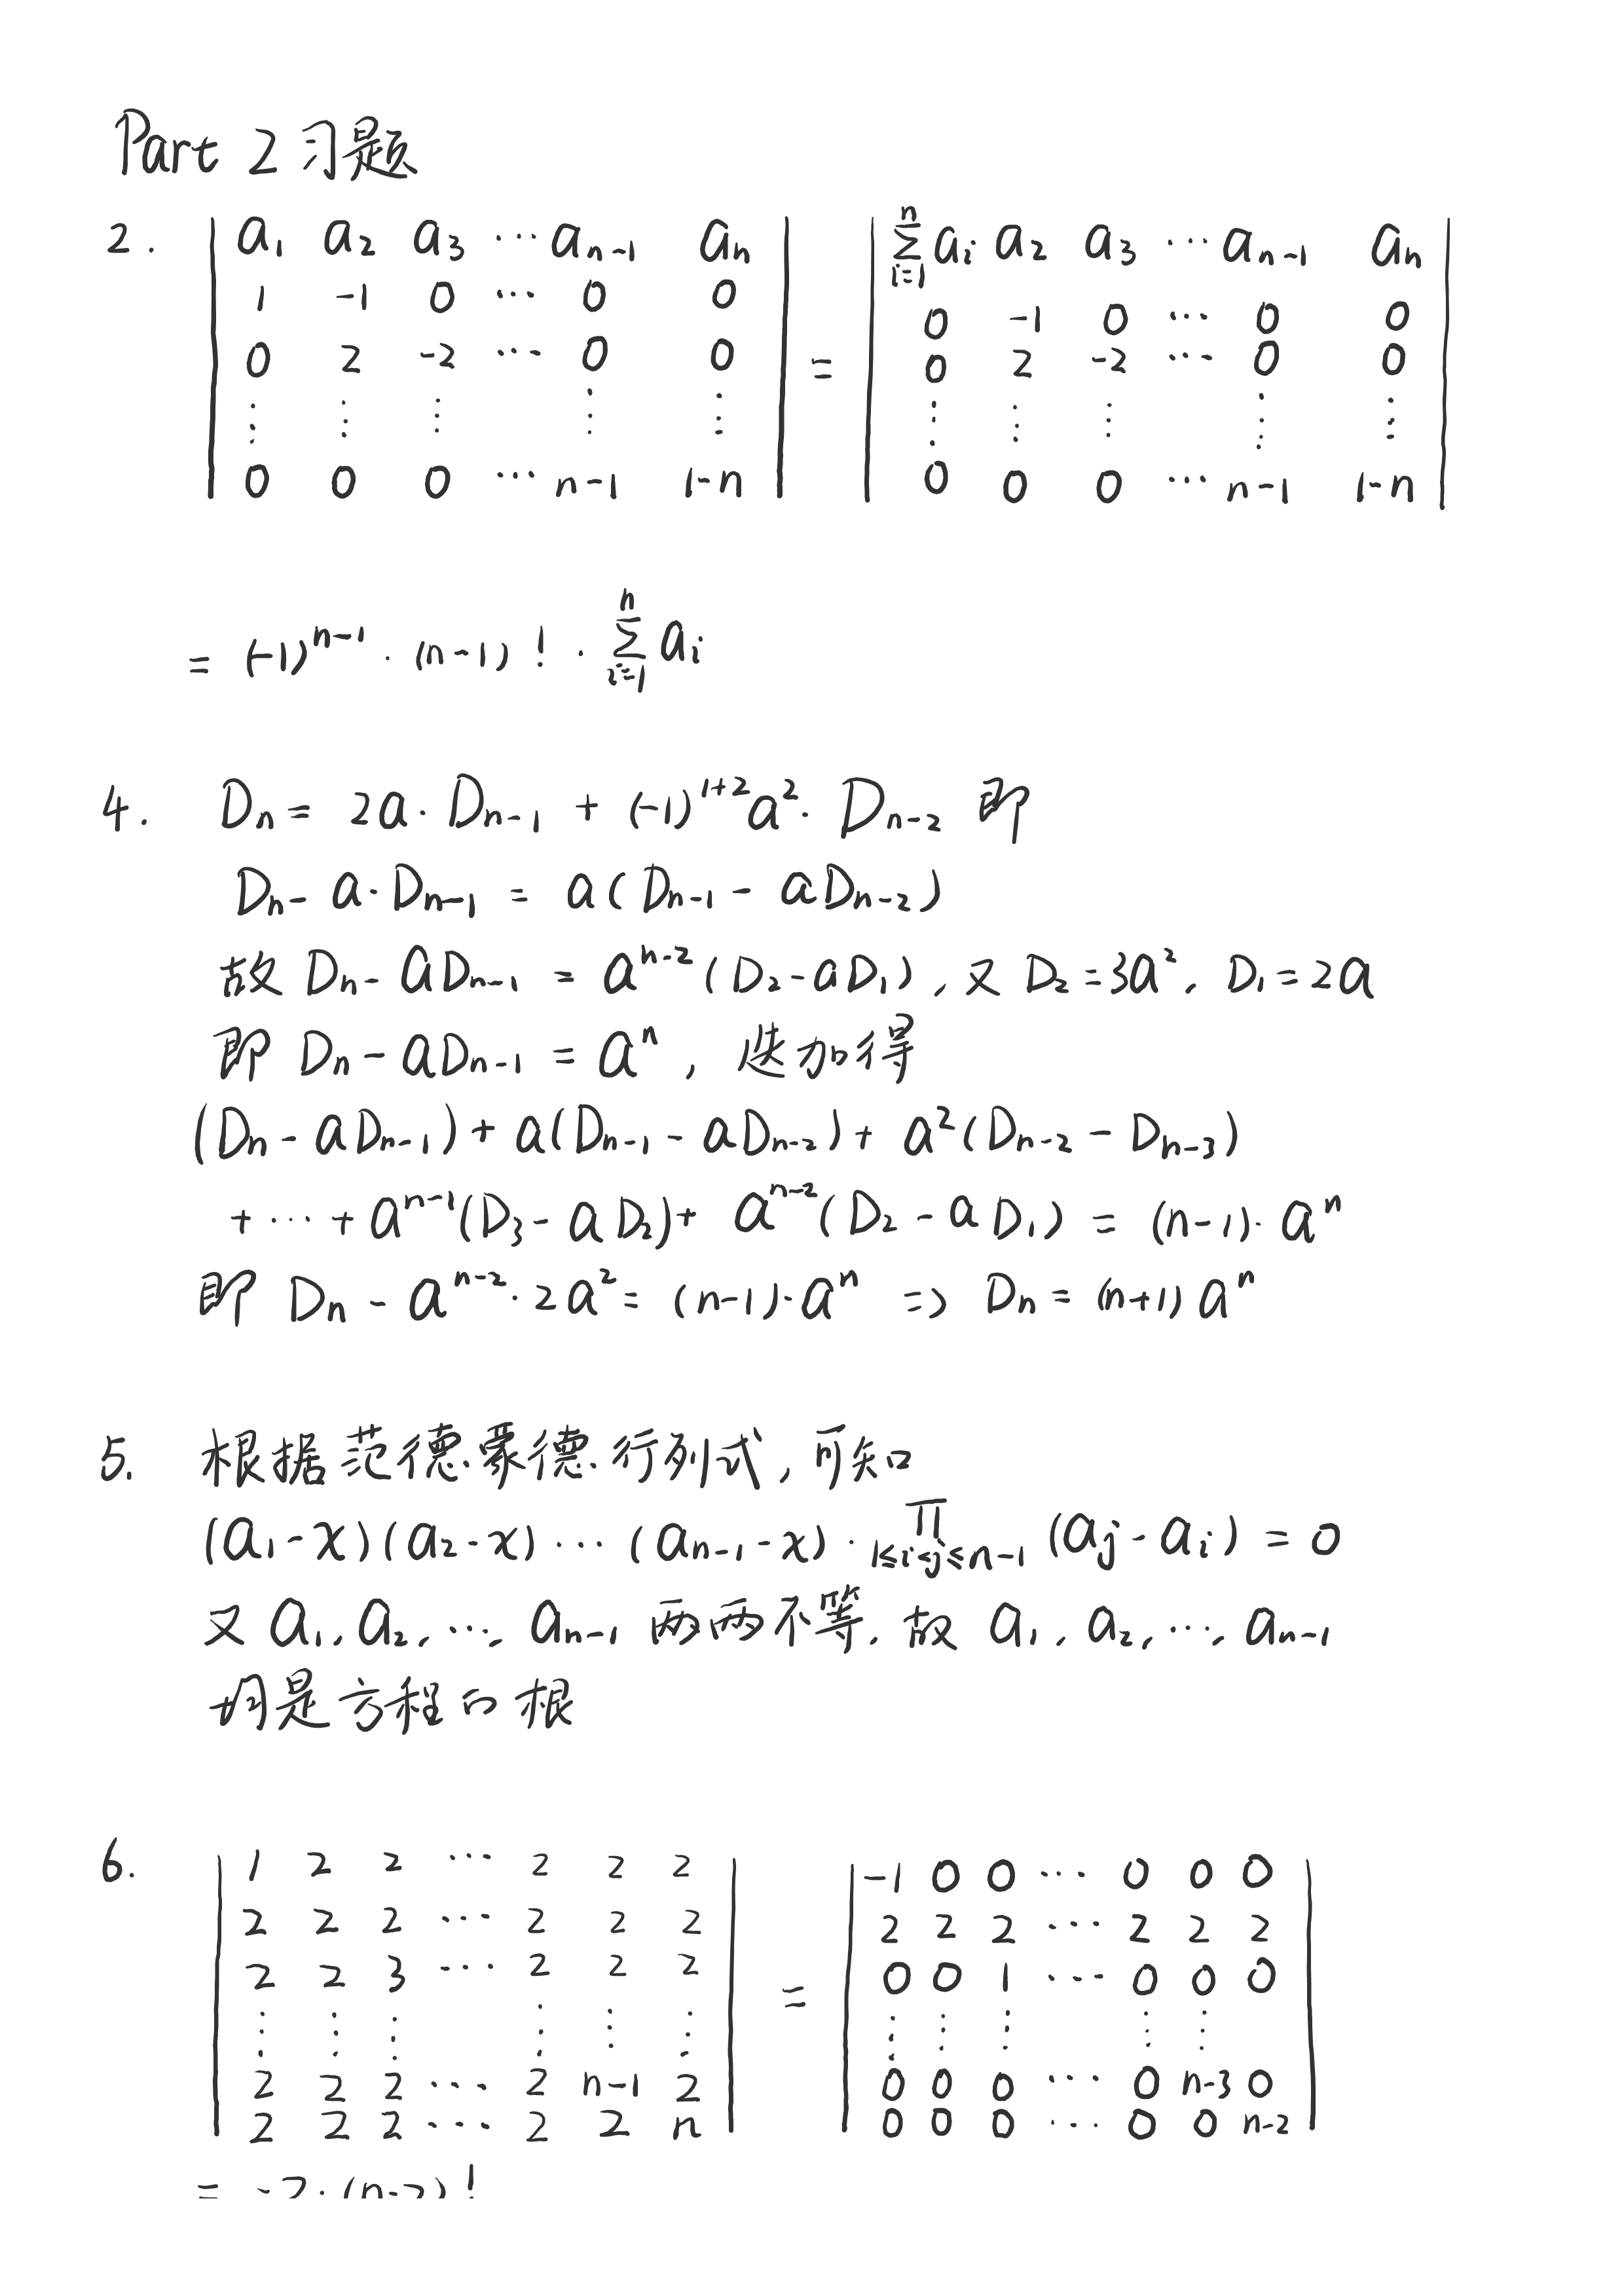 Part 2 习题
2. | a₁ a₂ a₃ ⋯ aₙ₋₁ aₙ | | ∑ᵢ₌₁ⁿ aᵢ a₂ a₃ ⋯ aₙ₋₁ aₙ |
| 1 -1 0 ⋯ 0 0 | | 0 -1 0 ⋯ 0 0 |
| 0 2 -2 ⋯ 0 0 | = | 0 2 -2 ⋯ 0 0 |
| ⋮ ⋮ ⋮ ⋮ ⋮ | | ⋮ ⋮ ⋮ ⋮ ⋮ |
| 0 0 0 ⋯ n-1 1-n | | 0 0 0 ⋯ n-1 1-n |
= (-1)ⁿ⁻¹ · (n-1)! · ∑ᵢ₌₁ⁿ aᵢ
4. Dₙ = 2a · Dₙ₋₁ + (-1)¹⁺² a² · Dₙ₋₂ 即
Dₙ - a · Dₙ₋₁ = a(Dₙ₋₁ - aDₙ₋₂)
故 Dₙ - aDₙ₋₁ = aⁿ⁻²(D₂ - aD₁), 又 D₂ = 3a², D₁ = 2a
即 Dₙ - aDₙ₋₁ = aⁿ, 迭加得
(Dₙ - aDₙ₋₁) + a(Dₙ₋₁ - aDₙ₋₂) + a²(Dₙ₋₂ - Dₙ₋₃)
+ ⋯ + aⁿ⁻¹(D₃ - aD₂) + aⁿ⁻²(D₂ - aD₁) = (n-1) · aⁿ
即 Dₙ - aⁿ⁻² · 2a² = (n-1) · aⁿ => Dₙ = (n+1) aⁿ
5. 根据范德蒙德行列式, 可知
(a₁ - x)(a₂ - x) ⋯ (aₙ₋₁ - x) · ∏_{1≤i<j≤n-1} (aⱼ - aᵢ) = 0
又 a₁, a₂, ⋯, aₙ₋₁ 两两不等, 故 a₁, a₂, ⋯, aₙ₋₁
均是方程的根
6. | 1 2 2 ⋯ 2 2 2 | | -1 0 0 ⋯ 0 0 0 |
| 2 2 2 ⋯ 2 2 2 | | 2 2 2 ⋯ 2 2 2 |
| 2 2 3 ⋯ 2 2 2 | = | 0 0 1 ⋯ 0 0 0 |
| ⋮ ⋮ ⋮ ⋮ ⋮ ⋮ | | ⋮ ⋮ ⋮ ⋮ ⋮ |
| 2 2 2 ⋯ 2 n-1 2 | | 0 0 0 ⋯ 0 n-3 0 |
| 2 2 2 ⋯ 2 2 n | | 0 0 0 ⋯ 0 0 n-2 |
= -2 · (n-2)!